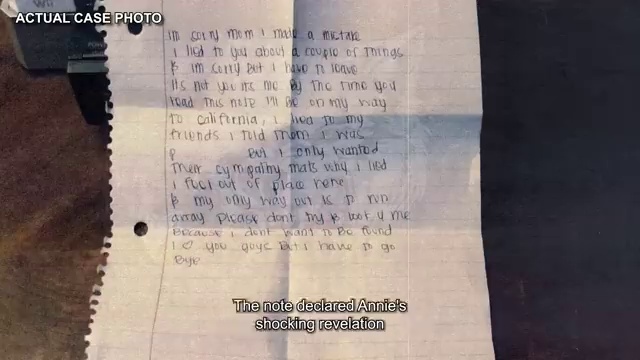 ACTUAL CASE PHOTO
Im sorry mom I made a mistake
I lied to you about a couple of things
& im sorry but I have to leave
its not you its me By the time you
read this note I'll be on my way
to california, I lied to my
friends I told them I was
p But I only wanted
their sympathy thats why I lied
I feel out of place here
& my only way out is to run
away please dont try & look 4 me
Because I dont want to be found
I <3 you guys But I have to go
Bye
The note declared Annie's
shocking revelation